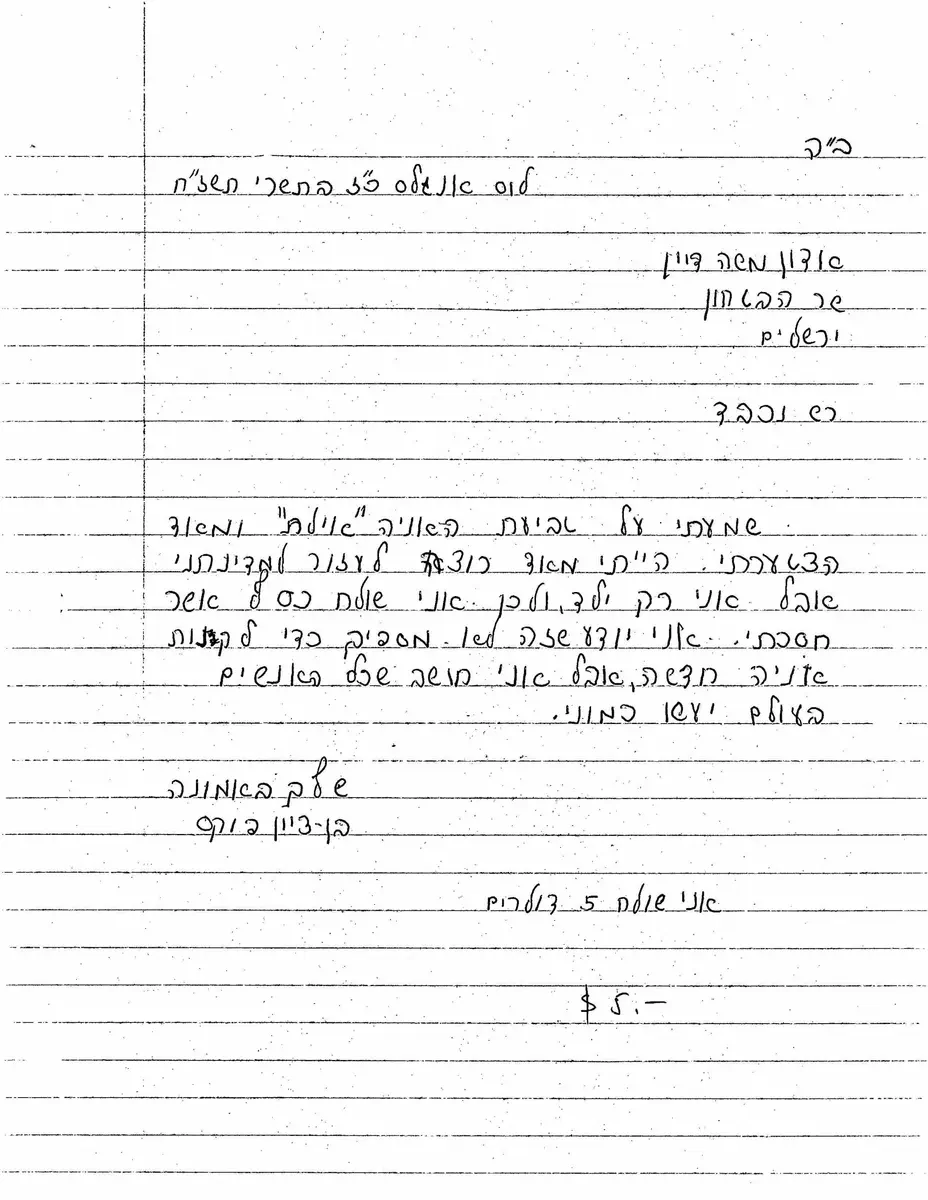 ב"ה
לוס אנגלס כ"ז בתשרי תשכ"ח
אדון משה דיין
שר הבטחון
ירשלים
רש נכבד
שמעתי על טביעת האניה "אילת" ומאוד
הצטערתי. הייתי מאוד רוצה לעזור למדינתני
אבל אני רק ילד, ולכן אני שולח כסף אשר
חסכתי. אני יודע שזה לא מספיק כדי לקנות
אניה חדשה, אבל אני חושב שכל האנשים
בעולם יעשו כמוני.
שלך באמונה
בן-ציון
אני שולח 5 דולרים
$ 5.—